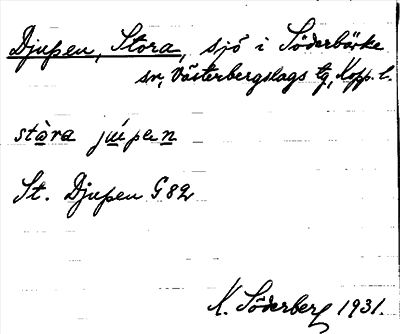 Djupen, Stora, sjö i Söderbärke
sn, Västerbergslags tg, Kopp. l.
stòra júpen
St. Djupen G 82
K. Söderberg 1931.